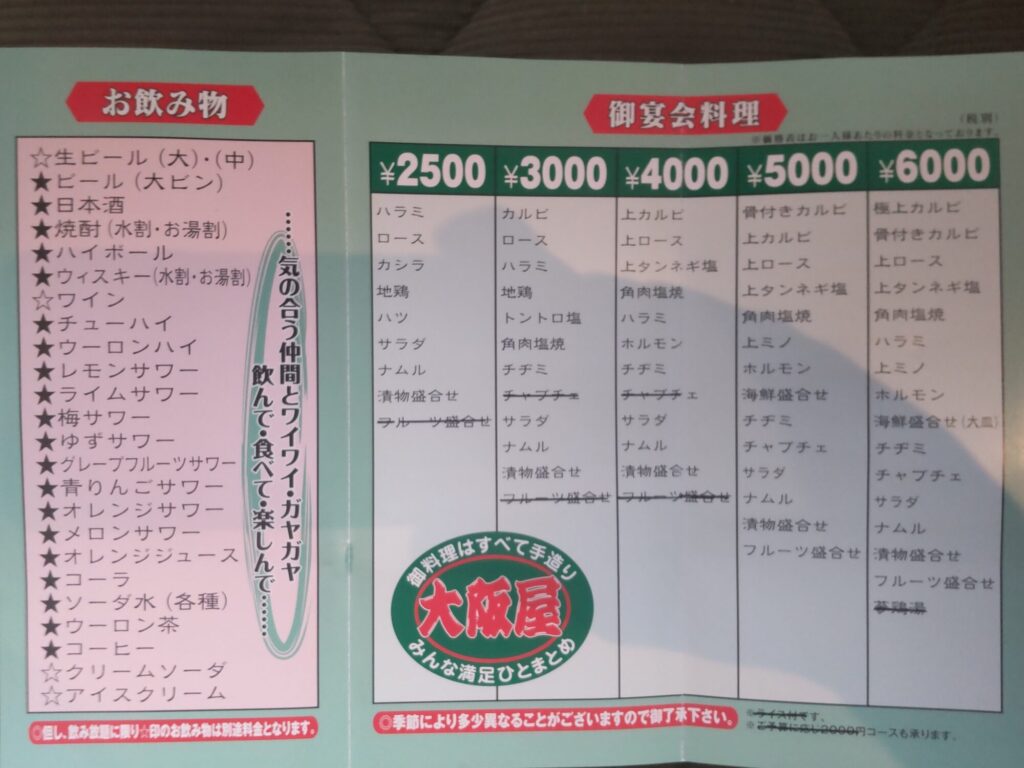 お飲み物
☆生ビール(大)・(中)
★ビール(大ビン)
★日本酒
★焼酎(水割・お湯割)
★ハイボール
★ウィスキー(水割・お湯割)
☆ワイン
★チューハイ
★ウーロンハイ
★レモンサワー
★ライムサワー
★梅サワー
★ゆずサワー
★グレープフルーツサワー
★青りんごサワー
★オレンジサワー
★メロンサワー
★オレンジジュース
★コーラ
★ソーダ水(各種)
★ウーロン茶
★コーヒー
☆クリームソーダ
☆アイスクリーム
……気の合う仲間とワイワイ・ガヤガヤ
飲んで・食べて・楽しんで……
◎但し、飲み放題に限り☆印のお飲み物は別途料金となります。
御宴会料理
(税別)
※価格表はお一人様あたりの料金となっております。
¥2500
ハラミ
ロース
カシラ
地鶏
ハツ
サラダ
ナムル
漬物盛合せ
フルーツ盛合せ
¥3000
カルビ
ロース
ハラミ
地鶏
トントロ塩
角肉塩焼
チヂミ
チャプチェ
サラダ
ナムル
漬物盛合せ
フルーツ盛合せ
¥4000
上カルビ
上ロース
上タンネギ塩
角肉塩焼
ハラミ
ホルモン
チヂミ
チャプチェ
サラダ
ナムル
漬物盛合せ
フルーツ盛合せ
¥5000
骨付きカルビ
上カルビ
上ロース
上タンネギ塩
角肉塩焼
上ミノ
ホルモン
海鮮盛合せ
チヂミ
チャプチェ
サラダ
ナムル
漬物盛合せ
フルーツ盛合せ
¥6000
極上カルビ
骨付きカルビ
上ロース
上タンネギ塩
角肉塩焼
ハラミ
上ミノ
ホルモン
海鮮盛合せ(大皿)
チヂミ
チャプチェ
サラダ
ナムル
漬物盛合せ
フルーツ盛合せ
参鶏湯
御料理はすべて手造り
大阪屋
みんな満足ひとまとめ
◎季節により多少異なることがございますので御了承下さい。
※ライス付です。
※ご予算に応じ2000円コースも承ります。